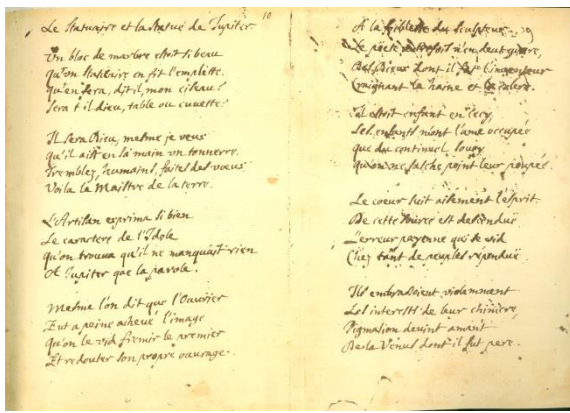 Le Statuaire et la statue de Jupiter
10
Un bloc de marbre estoit si beau
qu'on statuaire en fit l'emplette.
qu'en fera, dit il, mon ciseau?
sera t il dieu, table ou cuvette?
Il sera Dieu, mesme je veux
qu'il ait en sa main un tonnerre.
Tremblez humains, faites des voeux
Voila le Maistre de la terre.
L'Artisan exprima si bien
Le caractere de l'Idole
qu'on trouva qu'il ne manquait rien
A Jupiter que la parole.
Mesme l'on dit que l'Ouvrier
Eut a peine achevé l'image
qu'on le vid fremir le premier
Et redouter son propre ouvrage.
A la foiblesse du sculpteur
Le poete n'en deut guere,
Des Dieux dont il fut l'inventeur
Craignant la haine et la colere.
Il estoit enfant en cecy,
Les enfants n'ont l'ame occupée
que du continuel soucy
qu'on ne fasche point leur poupée.
Le coeur suit aisément l'esprit.
De cette source est descendüe
L'erreur payenne qui se vid
Chez tant de peuples répandüe.
Ils embrassoient violemment
Les interests de leur chimere,
Pigmalion devint amant
De la Venus dont il fut pere.